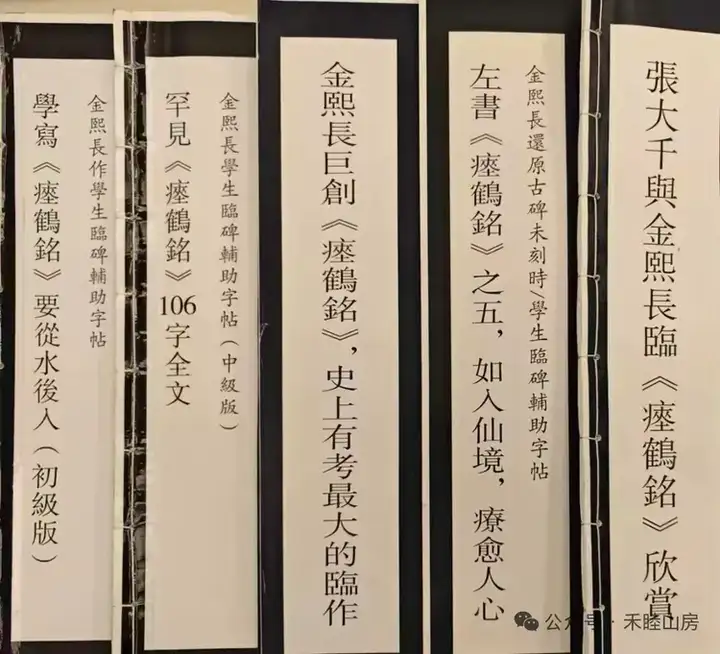 張大千與金熙長臨《瘞鶴銘》欣賞
金熙長還原古碑未刻時/學生臨碑輔助字帖
左書《瘞鶴銘》之五，如入仙境，療愈人心
金熙長巨創《瘞鶴銘》，史上有考最大的臨作
金熙長學生臨碑輔助字帖(中級版)
罕見《瘞鶴銘》106字全文
金熙長作學生臨碑輔助字帖
學寫《瘞鶴銘》要從水後入(初級版)
公众号 · 禾睦山房